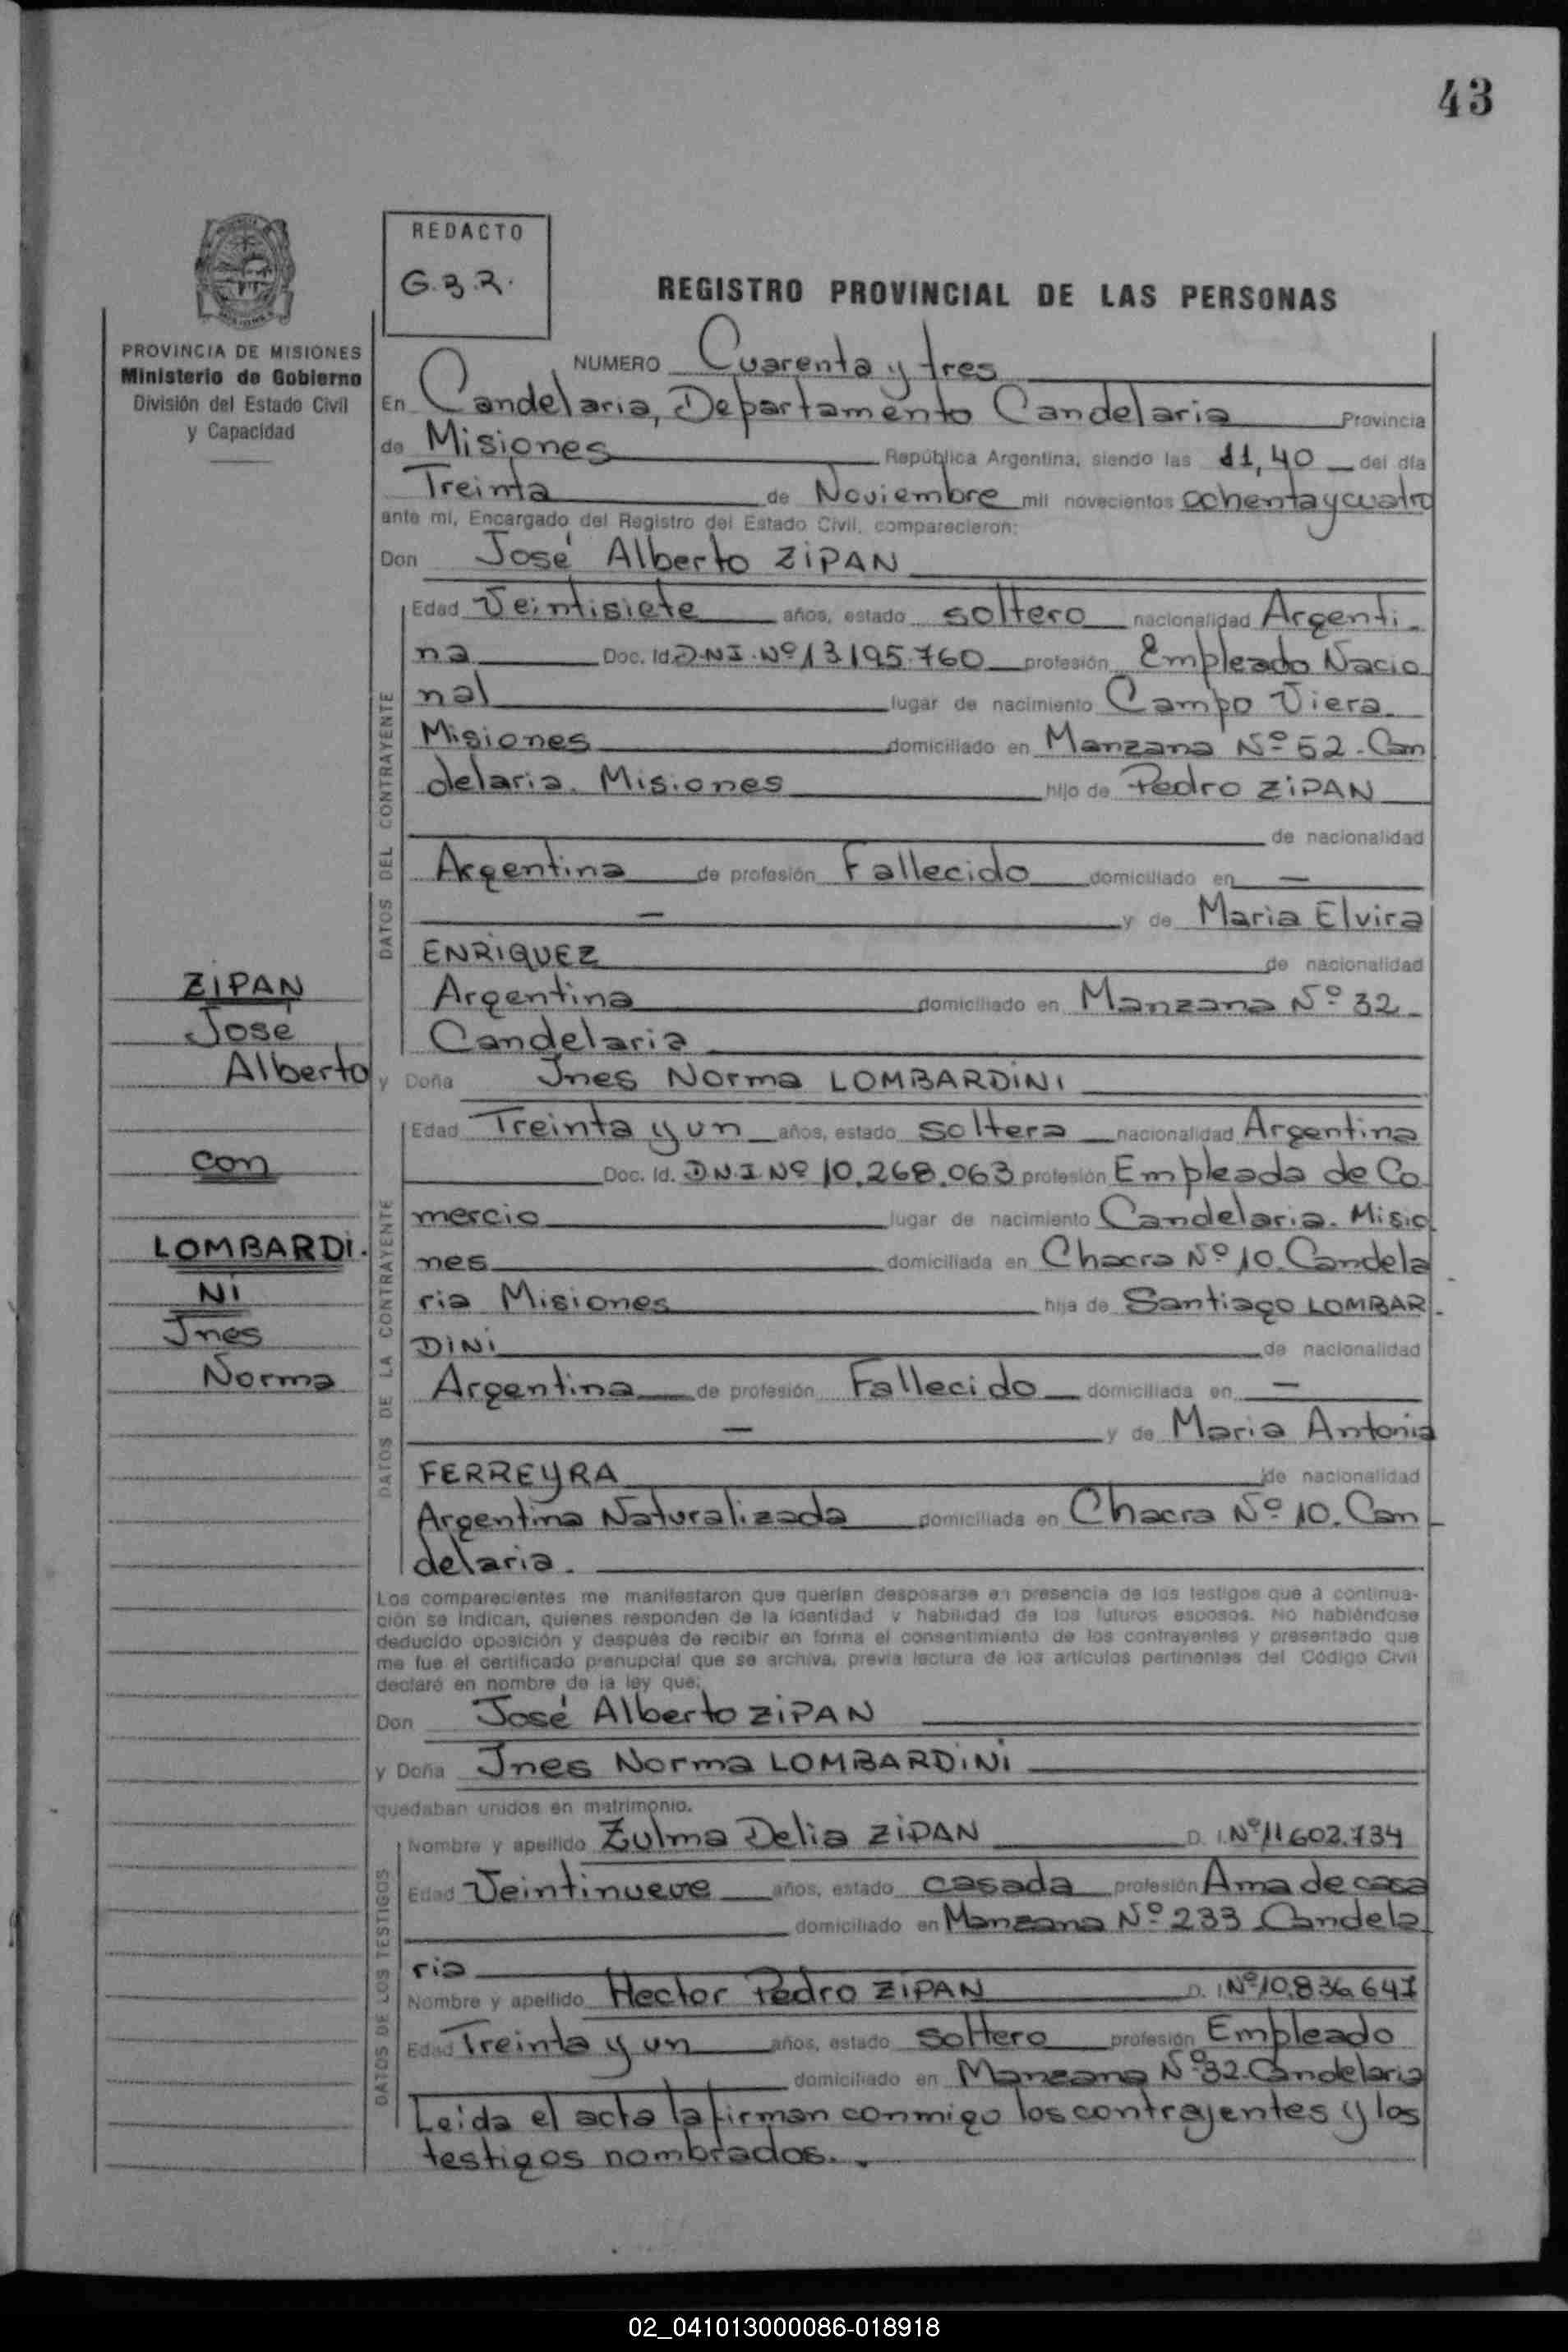 43
REDACTO
G.B.R.
REGISTRO PROVINCIAL DE LAS PERSONAS
PROVINCIA DE MISIONES
Ministerio de Gobierno
División del Estado Civil
y Capacidad
NUMERO Cuarenta y tres
En Candelaria, Departamento Candelaria Provincia
de Misiones República Argentina, siendo las 11,40 del día
Treinta de Noviembre mil novecientos ochenta y cuatro
ante mi, Encargado del Registro del Estado Civil, comparecieron:
Don José Alberto ZIPAN
DATOS DEL CONTRAYENTE
Edad Veintisiete años, estado soltero nacionalidad Argenti-
na Doc. Id. D.N.I. Nº 13195.760 profesión Empleado Nacio
nal lugar de nacimiento Campo Viera
Misiones domiciliado en Manzana Nº 52. Can
delaria. Misiones hijo de Pedro ZIPAN
de nacionalidad
Argentina de profesión Fallecido domiciliado en —
— y de Maria Elvira
ENRIQUEZ de nacionalidad
Argentina domiciliado en Manzana Nº 32
Candelaria
y Doña Ines Norma LOMBARDINI
ZIPAN
José
Alberto
con
LOMBARDI-
NI
Ines
Norma
DATOS DE LA CONTRAYENTE
Edad Treinta y un años, estado soltera nacionalidad Argentina
Doc. Id. D.N.I. Nº 10.268.063 profesión Empleada de Co
mercio lugar de nacimiento Candelaria. Misio
nes domiciliada en Chacra Nº 10. Candela
ria Misiones hija de Santiago LOMBAR-
DINI de nacionalidad
Argentina de profesión Fallecido domiciliada en —
— y de Maria Antonia
FERREYRA de nacionalidad
Argentina Naturalizada domiciliada en Chacra Nº 10. Can-
delaria.
Los comparecientes me manifestaron que querían desposarse en presencia de los testigos que a continua-
ción se indican, quienes responden de la identidad y habilidad de los futuros esposos. No habiéndose
deducido oposición y después de recibir en forma el consentimiento de los contrayentes y presentado que
me fue el certificado prenupcial que se archiva, previa lectura de los artículos pertinentes del Código Civil
declaré en nombre de la ley que:
Don José Alberto ZIPAN
y Doña Ines Norma LOMBARDINI
quedaban unidos en matrimonio.
DATOS DE LOS TESTIGOS
Nombre y apellido Zulma Delia ZIPAN D. I. Nº 11602.734
Edad Veintinueve años, estado casada profesión Ama de casa
domiciliado en Manzana Nº 233 Candela
ria
Nombre y apellido Hector Pedro ZIPAN D. I. Nº 10.836.647
Edad Treinta y un años, estado soltero profesión Empleado
domiciliado en Manzana Nº 32. Candelaria
Leida el acta la firman conmigo los contrayentes y los
testigos nombrados.
02_041013000086-018918